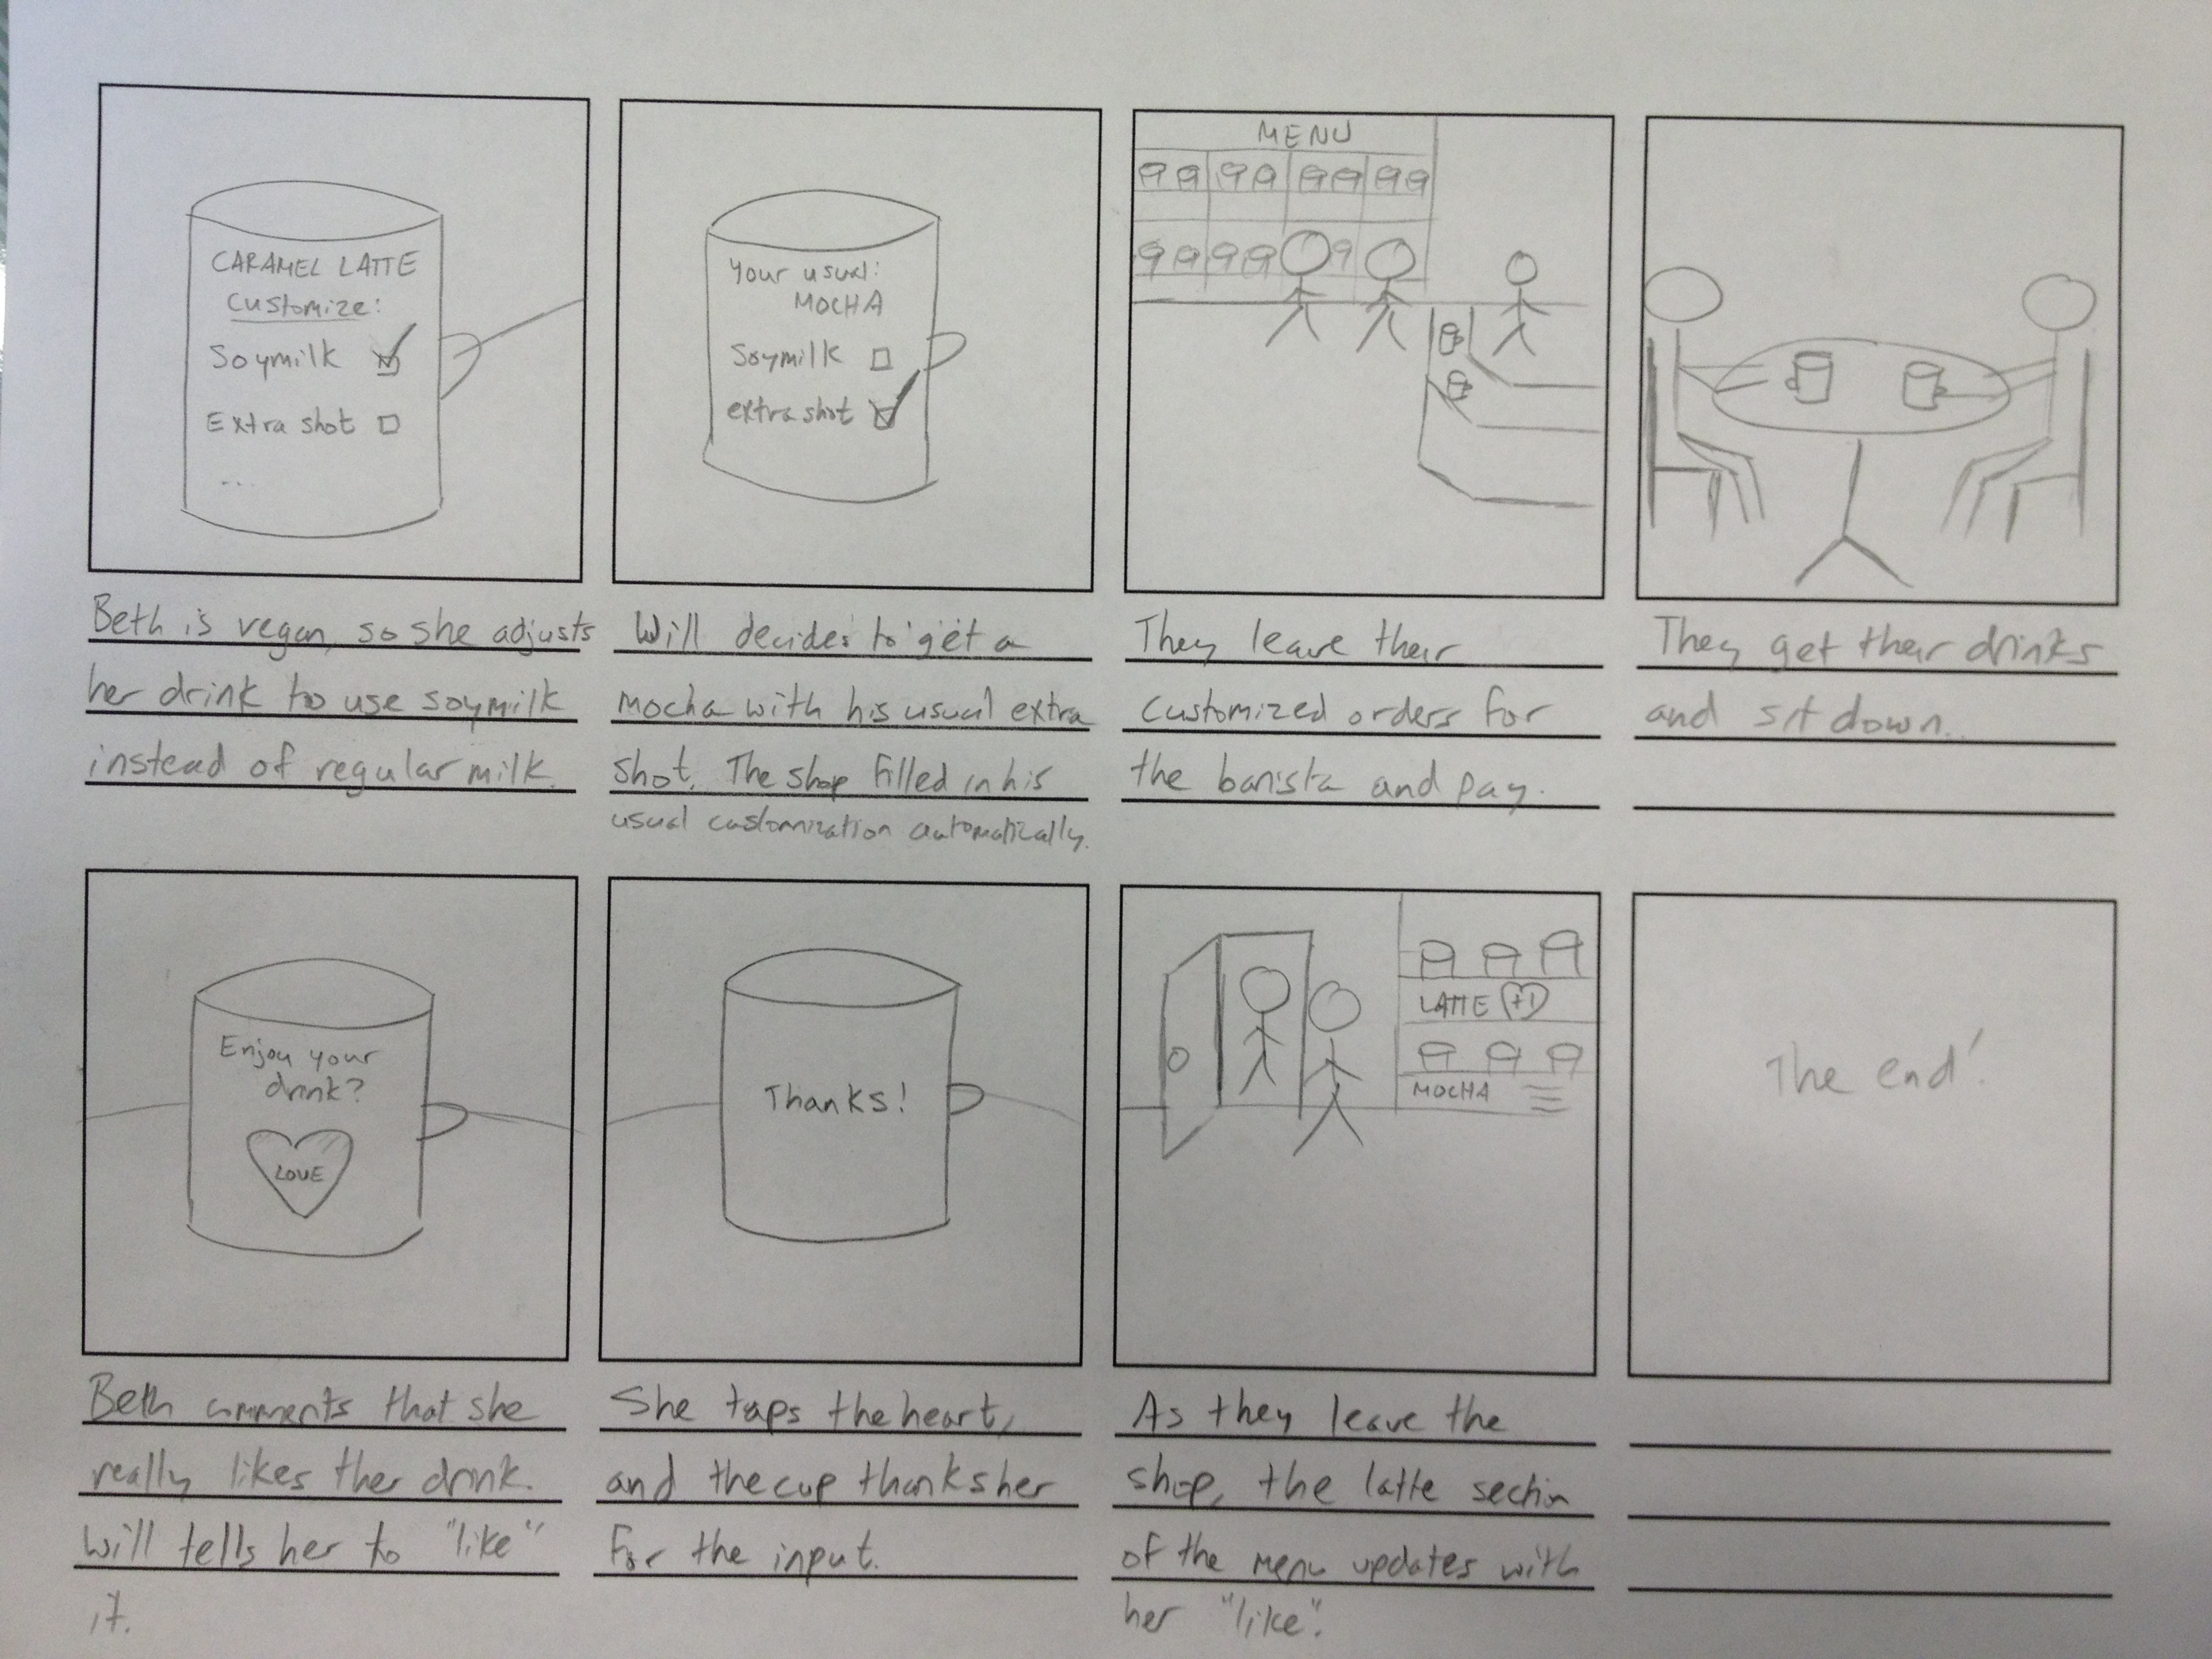 CARAMEL LATTE
Customize:
Soymilk
Extra shot
...
Beth is vegan, so she adjusts
her drink to use soymilk
instead of regular milk.
Your usual:
MOCHA
Soymilk
extra shot
Will decides to get a
Mocha with his usual extra
shot. The shop filled in his
usual customization automatically.
MENU
They leave their
customized orders for
the barista and pay.
They get their drinks
and sit down.
Enjoy your
drink?
LOVE
Beth comments that she
really likes ther drink.
Will tells her to "like"
it.
Thanks!
She taps the heart,
and the cup thanks her
for the input.
LATTE +1
MOCHA
As they leave the
shop, the latte section
of the menu updates with
her "like".
The end!